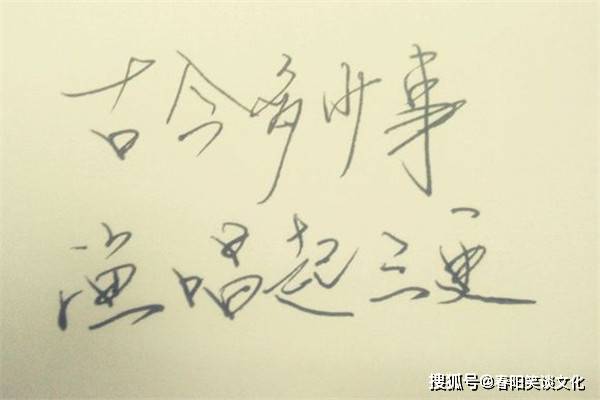 古今多少事
渔唱起三更
搜狐号@春阳笑谈文化